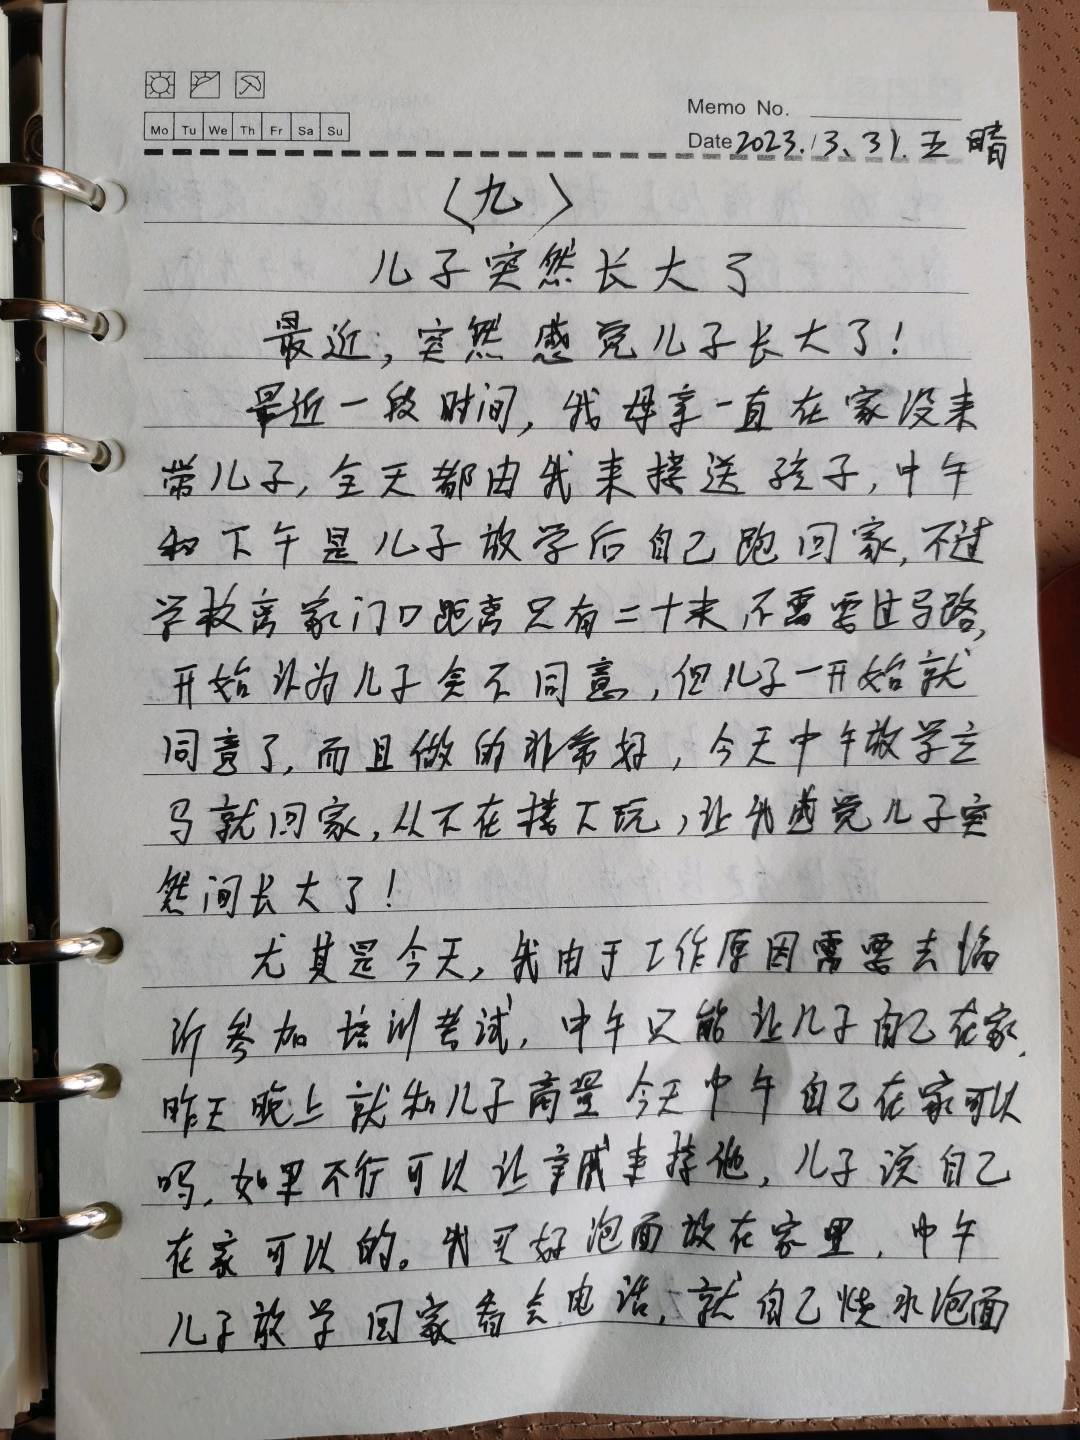 Memo No.
Mo Tu We Th Fr Sa Su
Date 2023.3.31.五 晴
〈九〉
儿子突然长大了
最近，突然感觉儿子长大了！
最近一段时间，我母亲一直在家没来
带儿子，全天都由我来接送孩子，中午
和下午是儿子放学后自己跑回家，不过
学校离家门口距离只有二十米不需要过马路，
开始认为儿子会不同意，但儿子一开始就
同意了，而且做的非常好，今天中午放学立
马就回家，从不在楼下玩，让我感觉儿子突
然间长大了！
尤其是今天，我由于工作原因需要去临
沂参加培训考试，中午只能让儿子自己在家，
昨天晚上就和儿子商量今天中午自己在家可以
吗，如果不行可以让亲戚来接他，儿子说自己
在家可以的。我买好泡面放在家里，中午
儿子放学回家看会电话，就自己烧水泡面